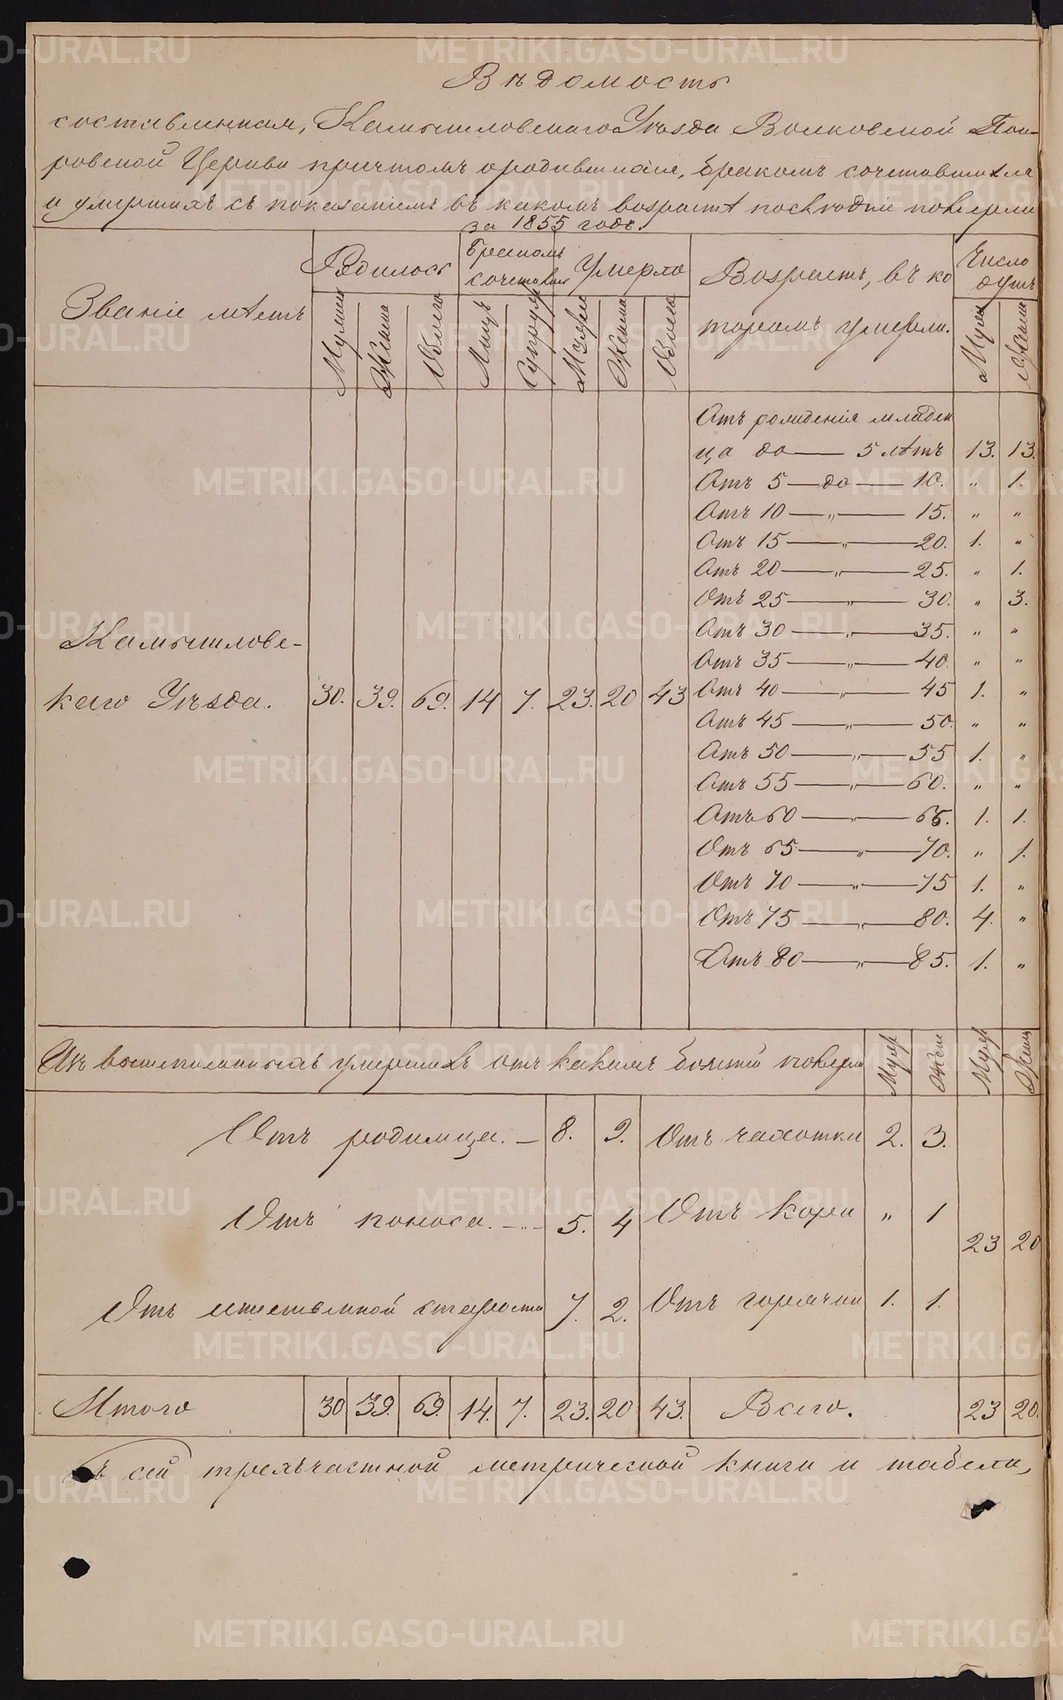 Вѣдомость
составленная, Камышловскаго Уѣзда Волковской Пок-
ровской Церкви причтомъ о родившихся, бракомъ сочетавшихся
и умершихъ съ показаніемъ въ какомъ возрастѣ послѣдніе померли
за 1855 годъ.
Званіе мѣстъ
Родилось
Бракомъ сочетались
Умерло
Возрастъ, въ ко
торомъ умерли.
Число душъ
Муж
Женс
Обоего
Лицъ
Супруж
Муж
Женс
Обоего
Муж
Женс
Отъ рожденія младен
ца до — 5 лѣтъ 13. 13.
Отъ 5 — до — 10. „ 1.
Отъ 10 — „ — 15. „ „
Отъ 15 — „ — 20. 1. „
Отъ 20 — „ — 25. „ 1.
Отъ 25 — „ — 30. „ 3.
Отъ 30 — „ — 35. „ „
Отъ 35 — „ — 40. „ „
Камышловс-
каго Уѣзда. 30. 39. 69. 14 7. 23. 20 43
Отъ 40 — „ — 45 1. „
Отъ 45 — „ — 50. „ „
Отъ 50 — „ — 55 1. „
Отъ 55 — „ — 60. „ „
Отъ 60 — „ — 65. 1. 1.
Отъ 65 — „ — 70. „ 1.
Отъ 70 — „ — 75 1. „
Отъ 75 — „ — 80. 4. „
Отъ 80 — „ — 85. 1. „
Изъ вышеписанныхъ умершихъ отъ какихъ болѣзней померли Муж Жен Муж Женс
Отъ родимца. — 8. 9. Отъ чахотки 2. 3.
Отъ поноса. — 5. 4 Отъ кори „ 1
23 20
Отъ естественной старости 7. 2. Отъ горячки 1. 1.
Итого 30 39. 69. 14. 7. 23. 20 43. Всего. 23 20.
Въ сей трехъчастной метрической книги и табели,
METRIKI.GASO-URAL.RU